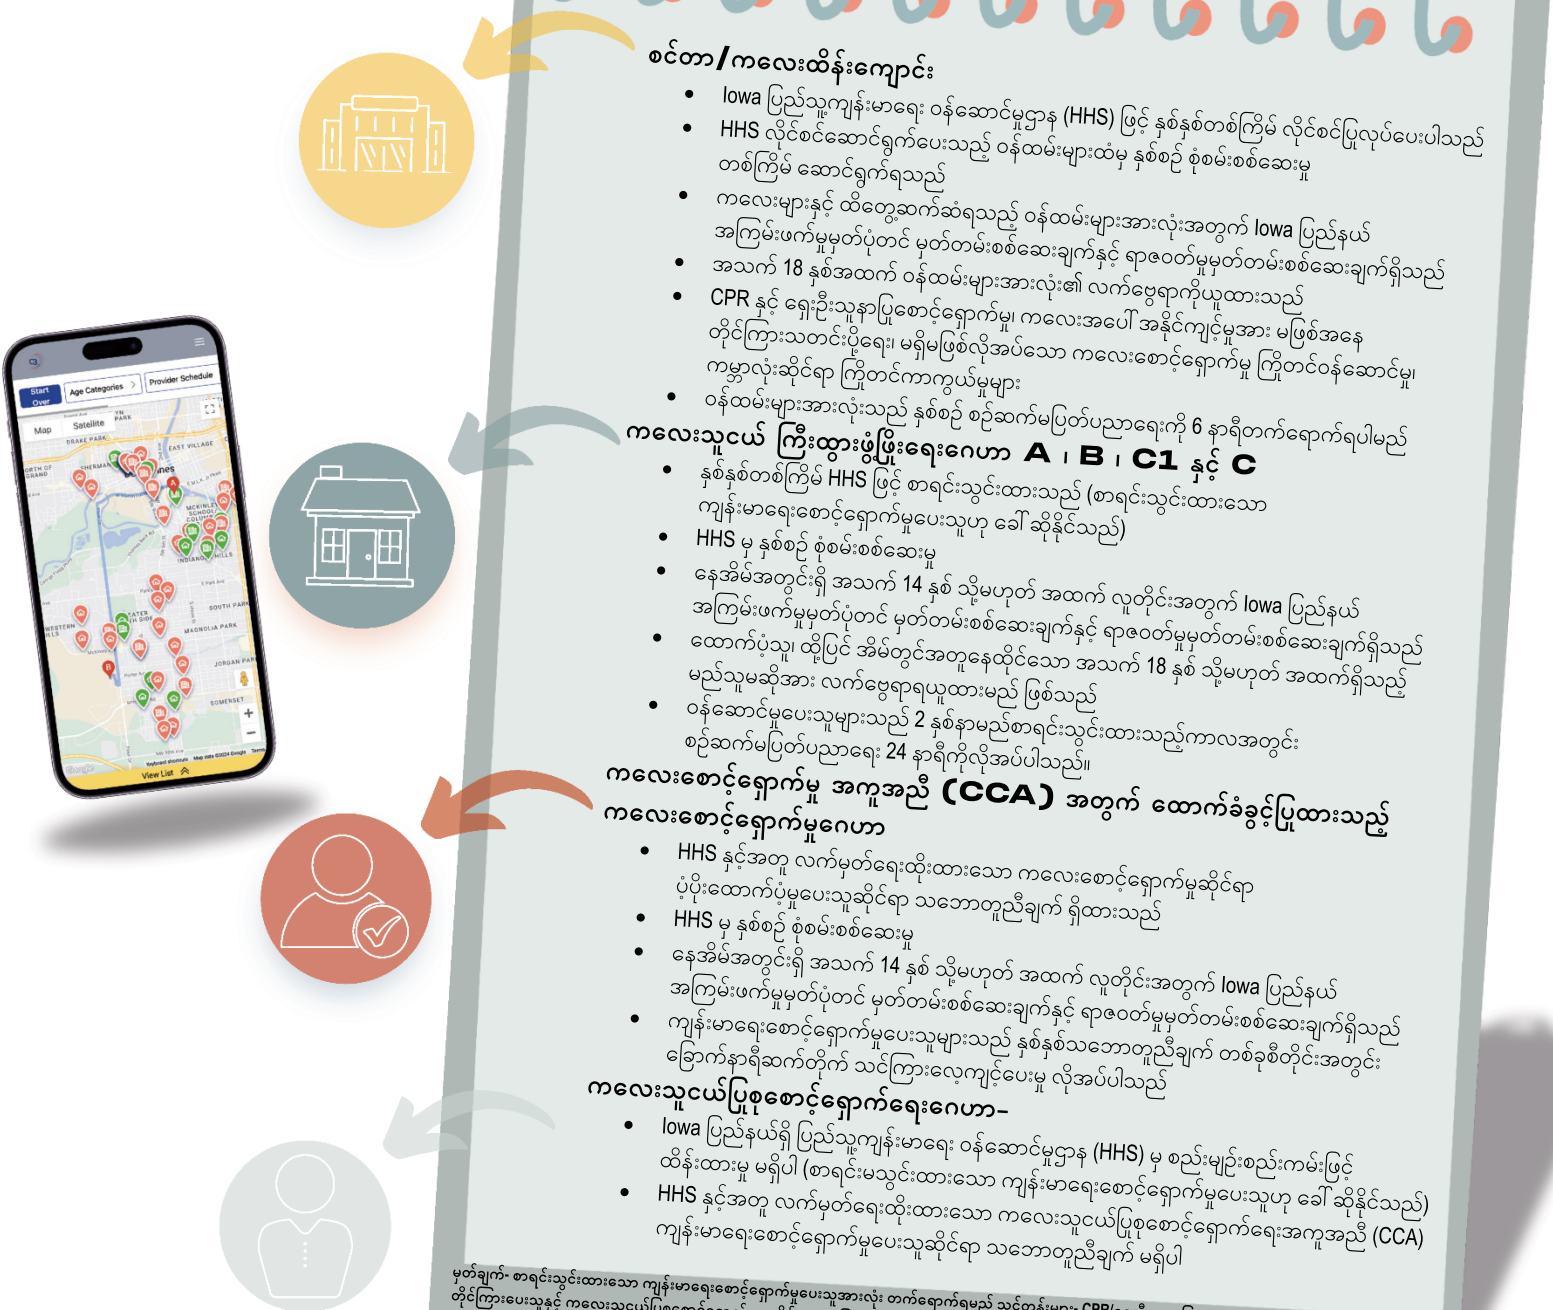 စင်တာ/ကလေးထိန်းကျောင်း
Iowa ပြည်သူ့ကျန်းမာရေး ဝန်ဆောင်မှုဌာန (HHS) ဖြင့် နှစ်နှစ်တစ်ကြိမ် လိုင်စင်ပြုလုပ်ပေးပါသည်
HHS လိုင်စင်ဆောင်ရွက်ပေးသည့် ဝန်ထမ်းများထံမှ နှစ်စဉ် စုံစမ်းစစ်ဆေးမှု
တစ်ကြိမ် ဆောင်ရွက်ရသည်
ကလေးများနှင့် ထိတွေ့ဆက်ဆံရသည့် ဝန်ထမ်းများအားလုံးအတွက် Iowa ပြည်နယ်
အကြမ်းဖက်မှုမှတ်ပုံတင် မှတ်တမ်းစစ်ဆေးချက်နှင့် ရာဇဝတ်မှုမှတ်တမ်းစစ်ဆေးချက်ရှိသည်
အသက် 18 နှစ်အထက် ဝန်ထမ်းများအားလုံး၏ လက်ဗွေရာကိုယူထားသည်
CPR နှင့် ရှေးဦးသူနာပြုစောင့်ရှောက်မှု၊ ကလေးအပေါ် အနိုင်ကျင့်မှုအား မဖြစ်အနေ
တိုင်ကြားသတင်းပို့ရေး၊ မရှိမဖြစ်လိုအပ်သော ကလေးစောင့်ရှောက်မှု ကြိုတင်ဝန်ဆောင်မှု၊
ကမ္ဘာလုံးဆိုင်ရာ ကြိုတင်ကာကွယ်မှုများ
ဝန်ထမ်းများအားလုံးသည် နှစ်စဉ် စဉ်ဆက်မပြတ်ပညာရေးကို 6 နာရီတက်ရောက်ရပါမည်
ကလေးသူငယ် ကြီးထွားဖွံ့ဖြိုးရေးဂေဟာ A ၊ B ၊ C1 နှင့် C
နှစ်နှစ်တစ်ကြိမ် HHS ဖြင့် စာရင်းသွင်းထားသည် (စာရင်းသွင်းထားသော
ကျန်းမာရေးစောင့်ရှောက်မှုပေးသူဟု ခေါ်ဆိုနိုင်သည်)
HHS မှ နှစ်စဉ် စုံစမ်းစစ်ဆေးမှု
နေအိမ်အတွင်းရှိ အသက် 14 နှစ် သို့မဟုတ် အထက် လူတိုင်းအတွက် Iowa ပြည်နယ်
အကြမ်းဖက်မှုမှတ်ပုံတင် မှတ်တမ်းစစ်ဆေးချက်နှင့် ရာဇဝတ်မှုမှတ်တမ်းစစ်ဆေးချက်ရှိသည်
ထောက်ပံ့သူ၊ ထို့ပြင် အိမ်တွင်အတူနေထိုင်သော အသက် 18 နှစ် သို့မဟုတ် အထက်ရှိသည့်
မည်သူမဆိုအား လက်ဗွေရာရယူထားမည် ဖြစ်သည်
ဝန်ဆောင်မှုပေးသူများသည် 2 နှစ်နာမည်စာရင်းသွင်းထားသည့်ကာလအတွင်း
စဉ်ဆက်မပြတ်ပညာရေး 24 နာရီကိုလိုအပ်ပါသည်။
ကလေးစောင့်ရှောက်မှု အကူအညီ (CCA) အတွက် ထောက်ခံခွင့်ပြုထားသည့်
ကလေးစောင့်ရှောက်မှုဂေဟာ
HHS နှင့်အတူ လက်မှတ်ရေးထိုးထားသော ကလေးစောင့်ရှောက်မှုဆိုင်ရာ
ပံ့ပိုးထောက်ပံ့မှုပေးသူဆိုင်ရာ သဘောတူညီချက် ရှိထားသည်
HHS မှ နှစ်စဉ် စုံစမ်းစစ်ဆေးမှု
နေအိမ်အတွင်းရှိ အသက် 14 နှစ် သို့မဟုတ် အထက် လူတိုင်းအတွက် Iowa ပြည်နယ်
အကြမ်းဖက်မှုမှတ်ပုံတင် မှတ်တမ်းစစ်ဆေးချက်နှင့် ရာဇဝတ်မှုမှတ်တမ်းစစ်ဆေးချက်ရှိသည်
ကျန်းမာရေးစောင့်ရှောက်မှုပေးသူများသည် နှစ်နှစ်သဘောတူညီချက် တစ်ခုစီတိုင်းအတွင်း
ခြောက်နာရီဆက်တိုက် သင်ကြားလေ့ကျင့်ပေးမှု လိုအပ်ပါသည်
ကလေးသူငယ်ပြုစုစောင့်ရှောက်ရေးဂေဟာ–
Iowa ပြည်နယ်ရှိ ပြည်သူ့ကျန်းမာရေး ဝန်ဆောင်မှုဌာန (HHS) မှ စည်းမျဉ်းစည်းကမ်းဖြင့်
ထိန်းထားမှု မရှိပါ (စာရင်းမသွင်းထားသော ကျန်းမာရေးစောင့်ရှောက်မှုပေးသူဟု ခေါ်ဆိုနိုင်သည်)
HHS နှင့်အတူ လက်မှတ်ရေးထိုးထားသော ကလေးသူငယ်ပြုစုစောင့်ရှောက်ရေးအကူအညီ (CCA)
ကျန်းမာရေးစောင့်ရှောက်မှုပေးသူဆိုင်ရာ သဘောတူညီချက် မရှိပါ
မှတ်ချက်- စာရင်းသွင်းထားသော ကျန်းမာရေးစောင့်ရှောက်မှုပေးသူအားလုံး တက်ရောက်ရမည့် သင်တန်းများ- CPR/
Start Over
Age Categories
Provider Schedule
Map
Satellite
DRAKE PARK
EAST VILLAGE
SOUTH PARK
MAGNOLIA PARK
SOMERSET
View List